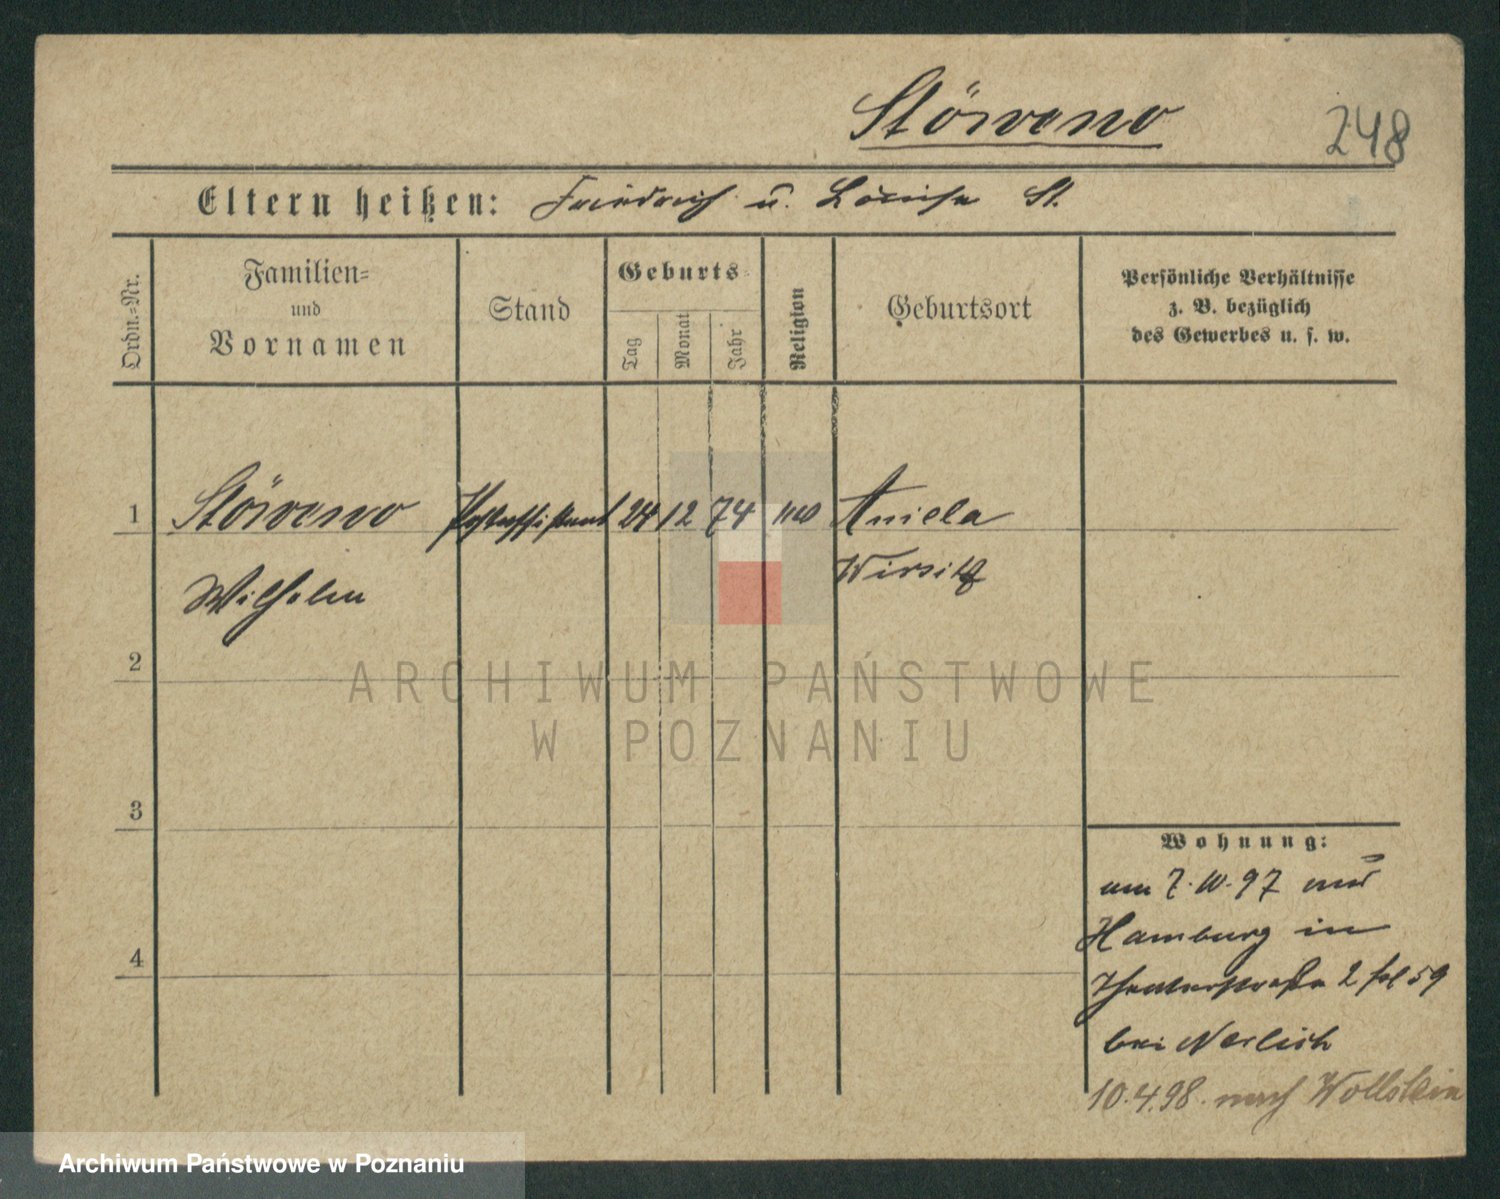 Störveno
248
Eltern heißen: Friedrich u. Louise St.
Ordn.=Nr.
Familien=
und
Vornamen
Stand
Geburts=
Tag
Monat
Jahr
Religion
Geburtsort
Persönliche Verhältnisse
z. B. bezüglich
des Gewerbes u. s. w.
1 Störveno Postassistent 24 12 74 Aniela
Wilhelm Wirsitz
2
3
4
Wohnung:
7.10.97
Hamburg in
Theaterstraße 2 59
bei Nerlich
10.4.98. nach Wollstein
ARCHIWUM PAŃSTWOWE
W POZNANIU
Archiwum Państwowe w Poznaniu